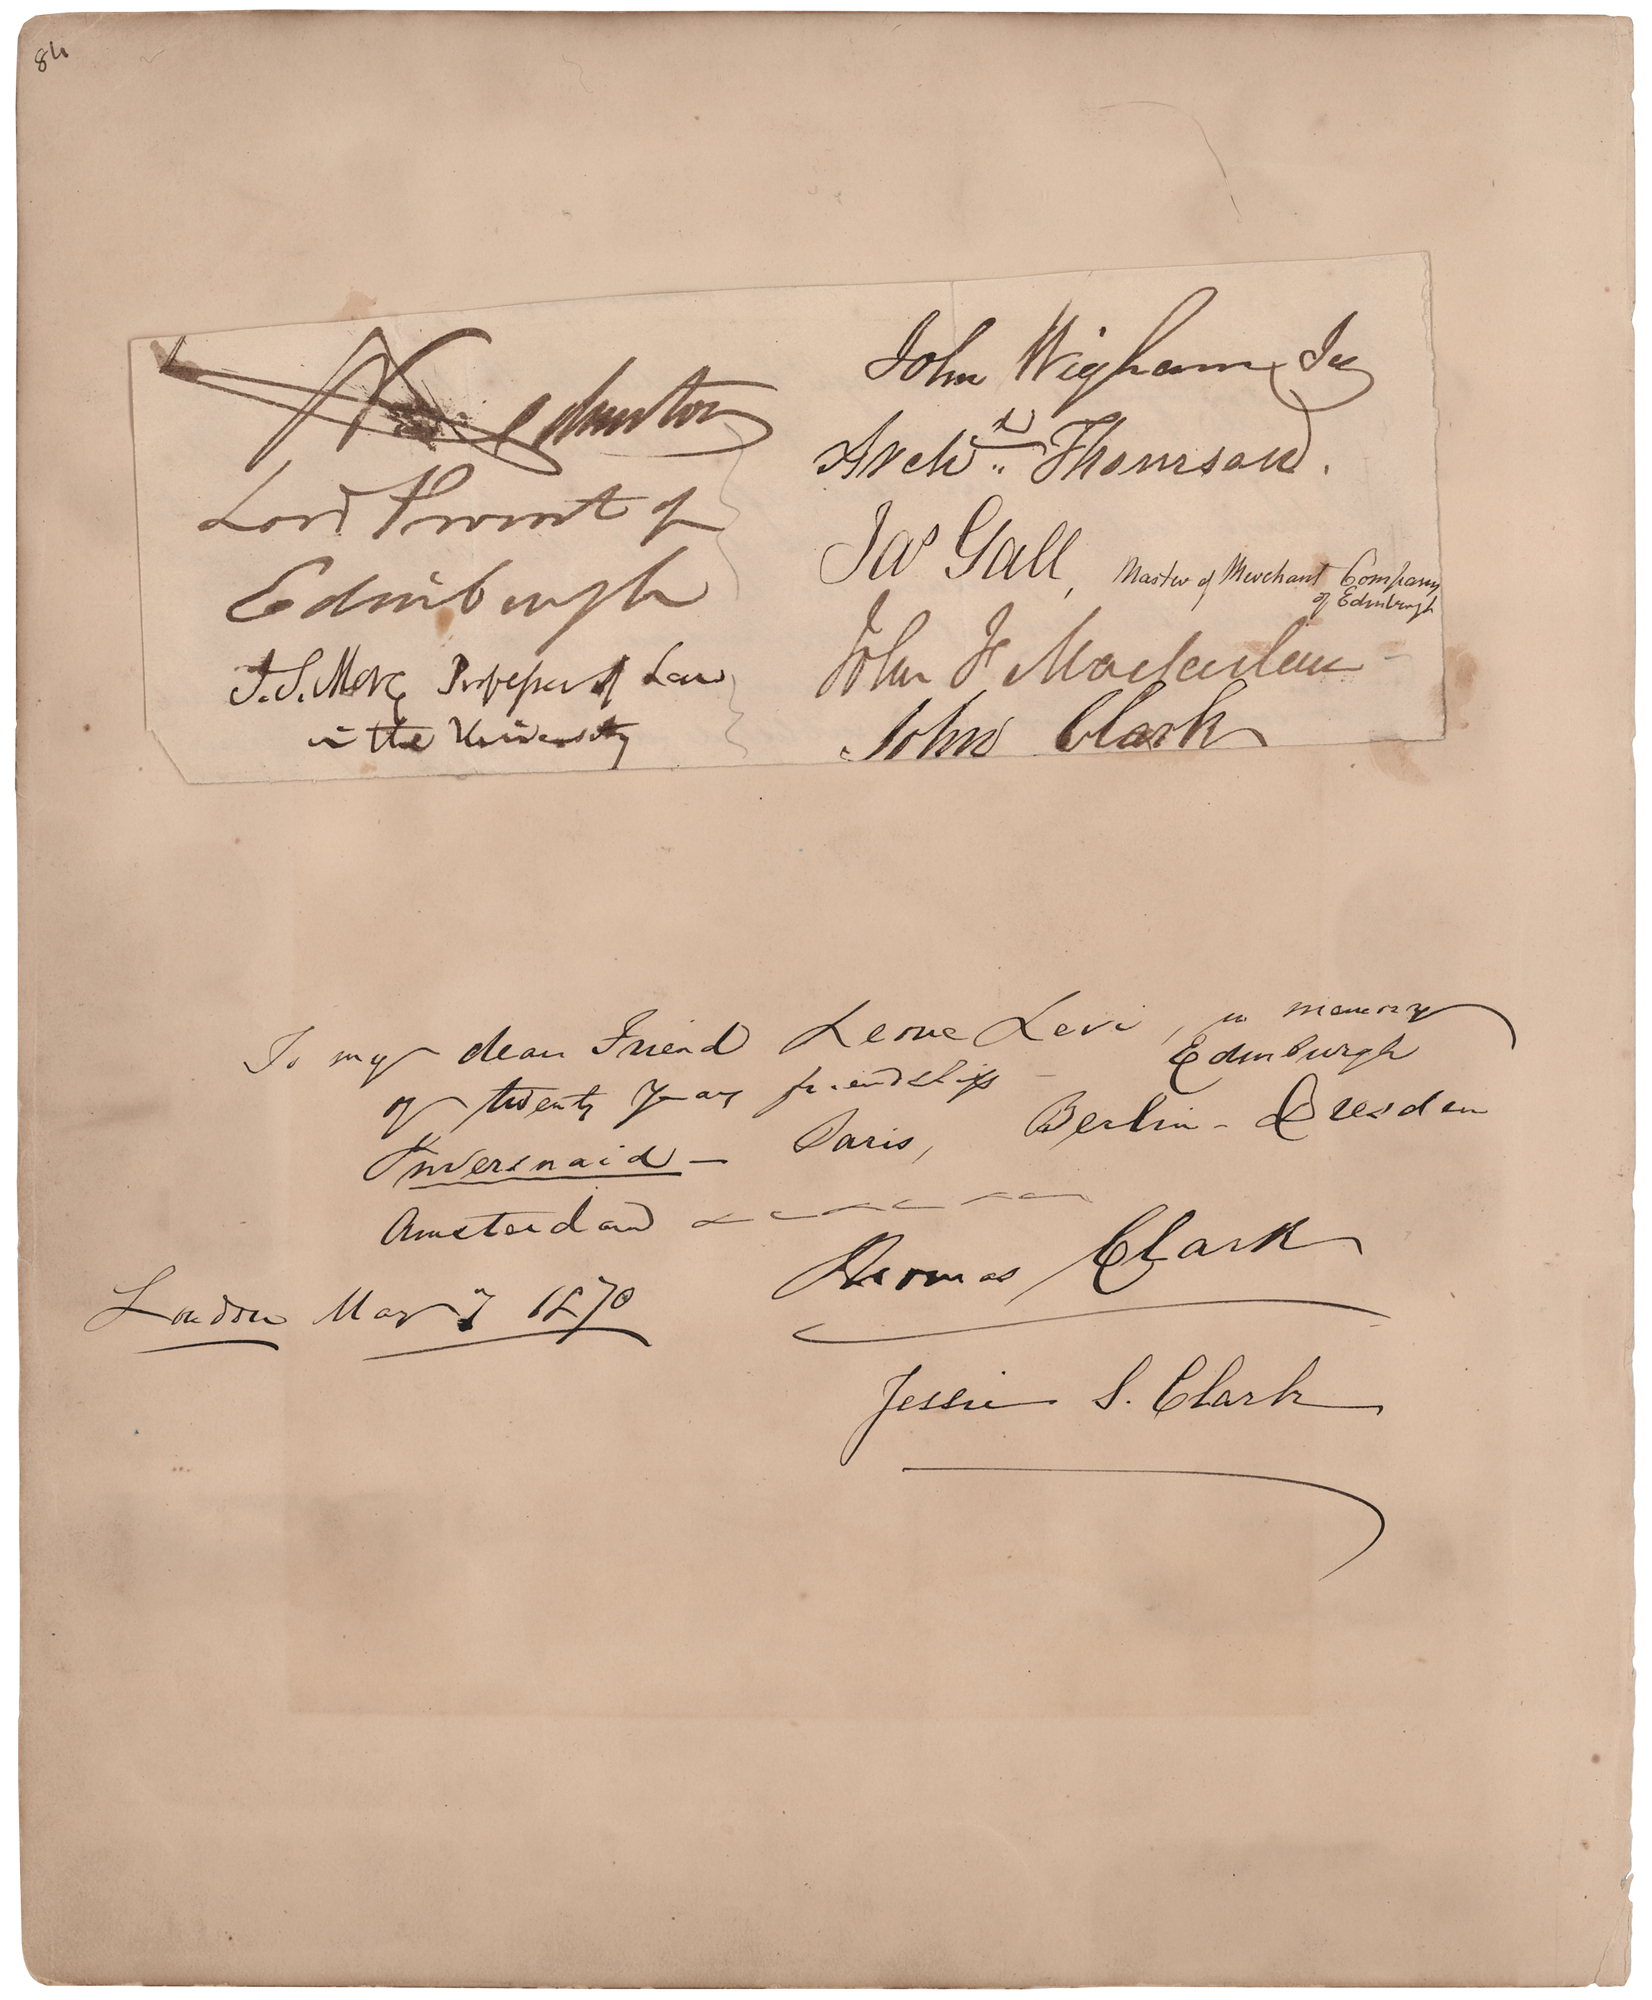 84
Johnston
Lord Provost of
Edinburgh
J. S. More Professor of Law
in the University
John Wigham Jr
Archd. Thomson.
Jas Gall, Master of Merchant Company
of Edinburgh
John F Macfarlan
John Clark
To my dear Friend Leone Levi, in memory
of twenty years friendship - Edinburgh
Inversnaid - Paris, Berlin - Dresden
Amsterdam
Thomas Clark
London May 7 1870
Jessie S. Clark